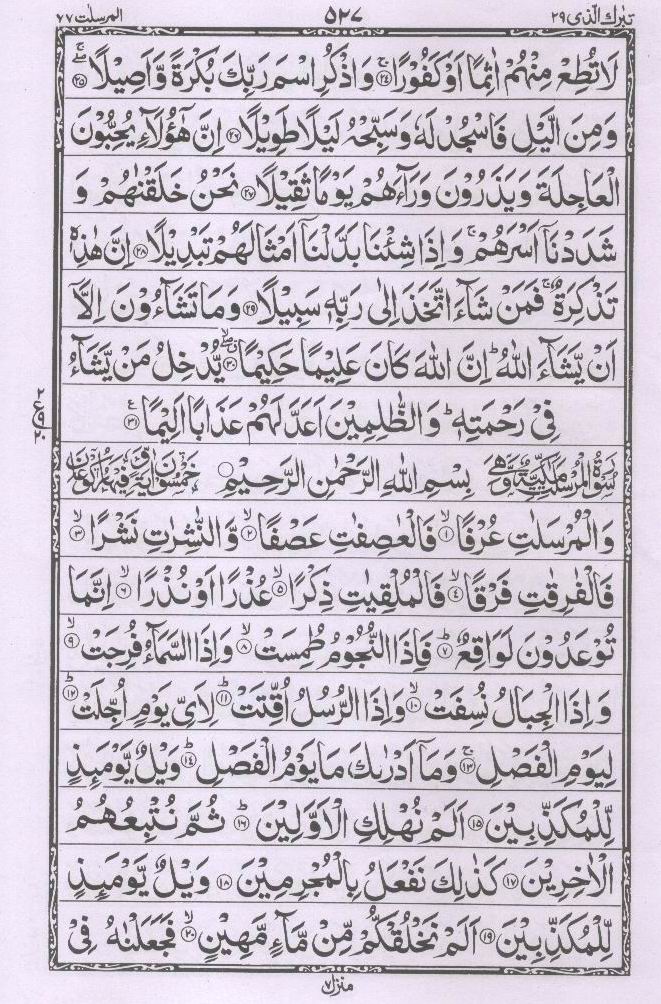 تبٰرك الّذی ۲۹ ۵۲۷ المرسلٰت ۷۷
لَا تُطِعْ مِنْهُمْ اٰثِمًا اَوْ كَفُوْرًا ۚ‏﴿۲۴﴾ وَاذْكُرِ اسْمَ رَبِّكَ بُكْرَةً وَّاَصِیْلًا ۖۚ‏﴿۲۵﴾
وَمِنَ الَّیْلِ فَاسْجُدْ لَهٗ وَسَبِّحْهُ لَیْلًا طَوِیْلًا ﴿۲۶﴾ اِنَّ هٰۤؤُلَآءِ یُحِبُّوْنَ
الْعَاجِلَةَ وَیَذَرُوْنَ وَرَآءَهُمْ یَوْمًا ثَقِیْلًا ﴿۲۷﴾ نَحْنُ خَلَقْنٰهُمْ وَ
شَدَدْنَاۤ اَسْرَهُمْ ۚ وَاِذَا شِئْنَا بَدَّلْنَاۤ اَمْثَالَهُمْ تَبْدِیْلًا ﴿۲۸﴾ اِنَّ هٰذِهٖ
تَذْكِرَةٌ ۚ فَمَنْ شَآءَ اتَّخَذَ اِلٰی رَبِّهٖ سَبِیْلًا ﴿۲۹﴾ وَمَا تَشَآءُوْنَ اِلَّاۤ
اَنْ یَّشَآءَ اللّٰهُ ؕ اِنَّ اللّٰهَ كَانَ عَلِیْمًا حَكِیْمًا ﴿۳۰﴾ یُّدْخِلُ مَنْ یَّشَآءُ
فِیْ رَحْمَتِهٖ ؕ وَالظّٰلِمِیْنَ اَعَدَّ لَهُمْ عَذَابًا اَلِیْمًا ﴿۳۱﴾
سُوْرَةُ الْمُرْسَلٰتِ مَكِّیَّةٌ وَّهِیَ بِسْمِ اللّٰهِ الرَّحْمٰنِ الرَّحِیْمِ خَمْسُوْنَ اٰیَةً وَّفِیْهَا رُكُوْعَانِ
وَالْمُرْسَلٰتِ عُرْفًا ۙ‏﴿۱﴾ فَالْعٰصِفٰتِ عَصْفًا ۙ‏﴿۲﴾ وَّالنّٰشِرٰتِ نَشْرًا ۙ‏﴿۳﴾
فَالْفٰرِقٰتِ فَرْقًا ۙ‏﴿۴﴾ فَالْمُلْقِیٰتِ ذِكْرًا ۙ‏﴿۵﴾ عُذْرًا اَوْ نُذْرًا ۙ‏﴿۶﴾ اِنَّمَا
تُوْعَدُوْنَ لَوَاقِعٌ ؕ‏﴿۷﴾ فَاِذَا النُّجُوْمُ طُمِسَتْ ۙ‏﴿۸﴾ وَاِذَا السَّمَآءُ فُرِجَتْ ۙ‏﴿۹﴾
وَاِذَا الْجِبَالُ نُسِفَتْ ۙ‏﴿۱۰﴾ وَاِذَا الرُّسُلُ اُقِّتَتْ ؕ‏﴿۱۱﴾ لِاَیِّ یَوْمٍ اُجِّلَتْ ؕ‏﴿۱۲﴾
لِیَوْمِ الْفَصْلِ ۚ‏﴿۱۳﴾ وَمَاۤ اَدْرٰىكَ مَا یَوْمُ الْفَصْلِ ؕ‏﴿۱۴﴾ وَیْلٌ یَّوْمَىِٕذٍ
لِّلْمُكَذِّبِیْنَ ﴿۱۵﴾ اَلَمْ نُهْلِكِ الْاَوَّلِیْنَ ؕ‏﴿۱۶﴾ ثُمَّ نُتْبِعُهُمُ
الْاٰخِرِیْنَ ﴿۱۷﴾ كَذٰلِكَ نَفْعَلُ بِالْمُجْرِمِیْنَ ﴿۱۸﴾ وَیْلٌ یَّوْمَىِٕذٍ
لِّلْمُكَذِّبِیْنَ ﴿۱۹﴾ اَلَمْ نَخْلُقْكُّمْ مِّنْ مَّآءٍ مَّهِیْنٍ ۙ‏﴿۲۰﴾ فَجَعَلْنٰهُ فِیْ
منزل ۷